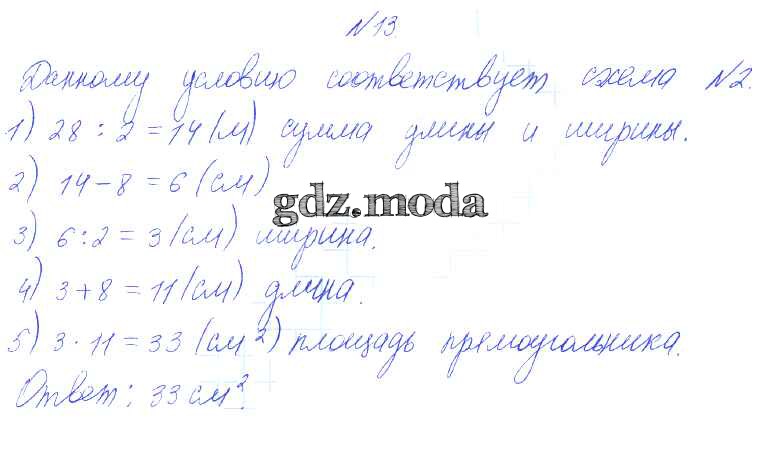 №13.
Данному условию соответствует схема №2.
1) 28 : 2 = 14 (м) сумма длины и ширины.
2) 14 - 8 = 6 (см)
gdz.moda
3) 6 : 2 = 3 (см) ширина.
4) 3 + 8 = 11 (см) длина.
5) 3 · 11 = 33 (см²) площадь прямоугольника.
Ответ: 33 см².